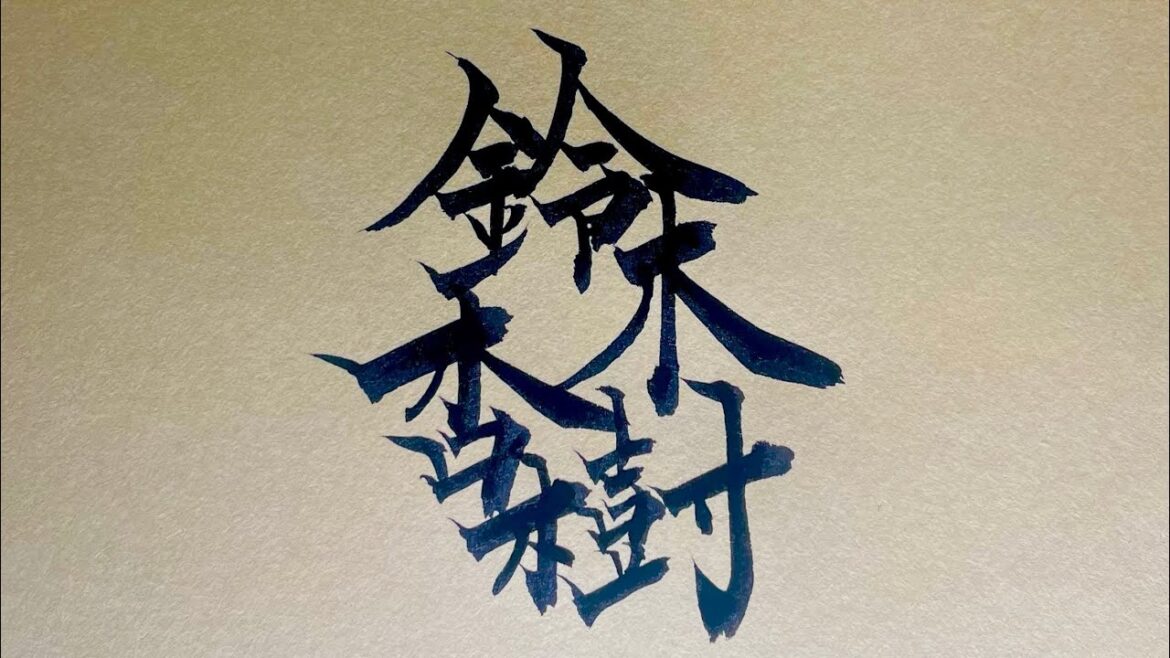 鈴木
杏樹